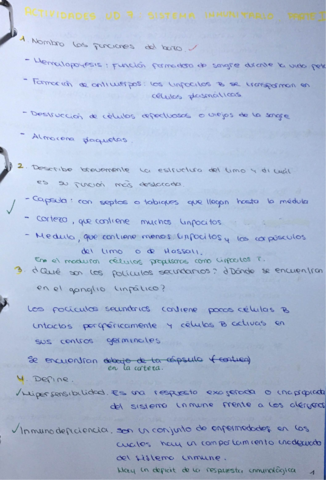 1. Nombra las funciones del bazo
- Hematopoyesis: función formadora de sangre durante la vida
- Formación de anticuerpos: los linfocitos B se transforman en
células plasmáticas
- Destrucción de células defectuosas o viejas de la sangre
- Almacena plaquetas
2. Describe brevemente la estructura del timo y di cuál
es su función más destacada
- Cápsula: con septos o tabiques que llegan hasta la médula
- Corteza, que contiene muchos linfocitos
- Médula, que contiene menos linfocitos y los corpúsculos
del timo o de Hassall.
células como linfocitos T.
3. ¿Qué son los folículos secundarios? ¿Dónde se encuentran
en el ganglio linfático?
Los folículos secundarios contiene pocas células B
intactas periféricamente y células B activas en
sus centros germinales.
Se encuentran debajo de la cápsula (corteza)
en la corteza.
4. Define.
Hipersensibilidad. Es una respuesta exagerada o inapropiada
del sistema inmune frente a los alérgenos
Inmunodeficiencia. Son un conjunto de enfermedades en las
cuales hay un comportamiento inadecuado
del sistema inmune.
Hay un déficit de la respuesta inmunológica
1